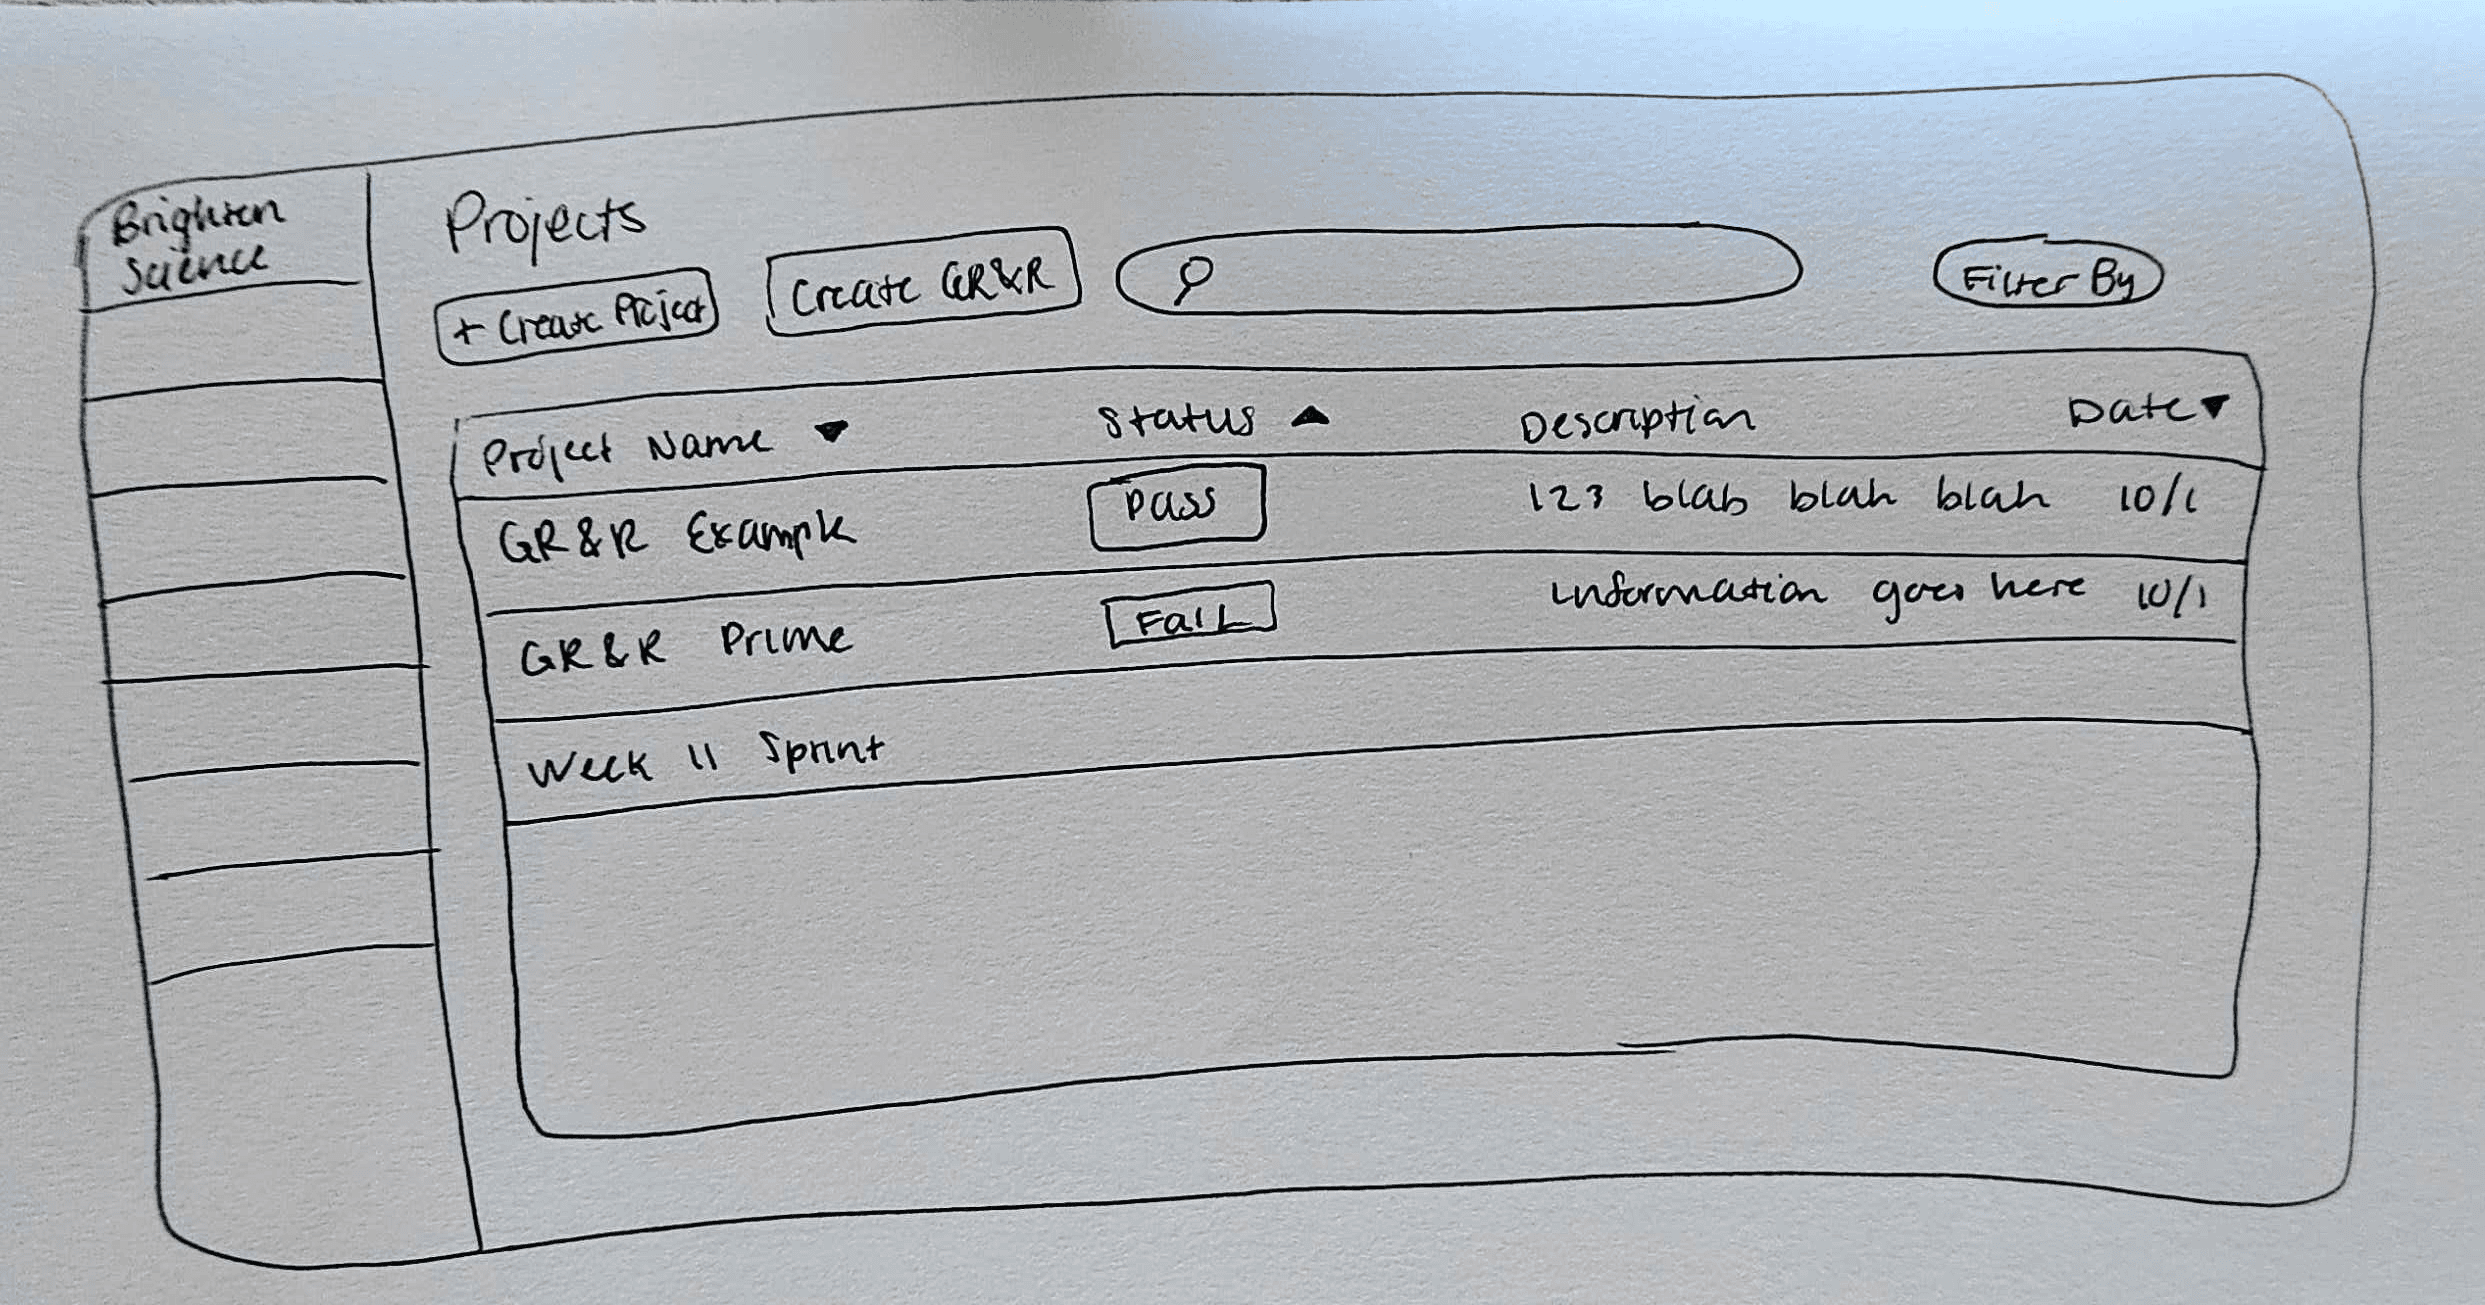 Brighten
Science
Projects
+ Create Project
Create GR&R
Filter By
Project Name ▼
Status ▲
Description
Date ▼
GR&R Example
Pass
123 blab blah blah
10/1
GR&R Prime
Fail
information goes here
10/1
Week 11 Sprint